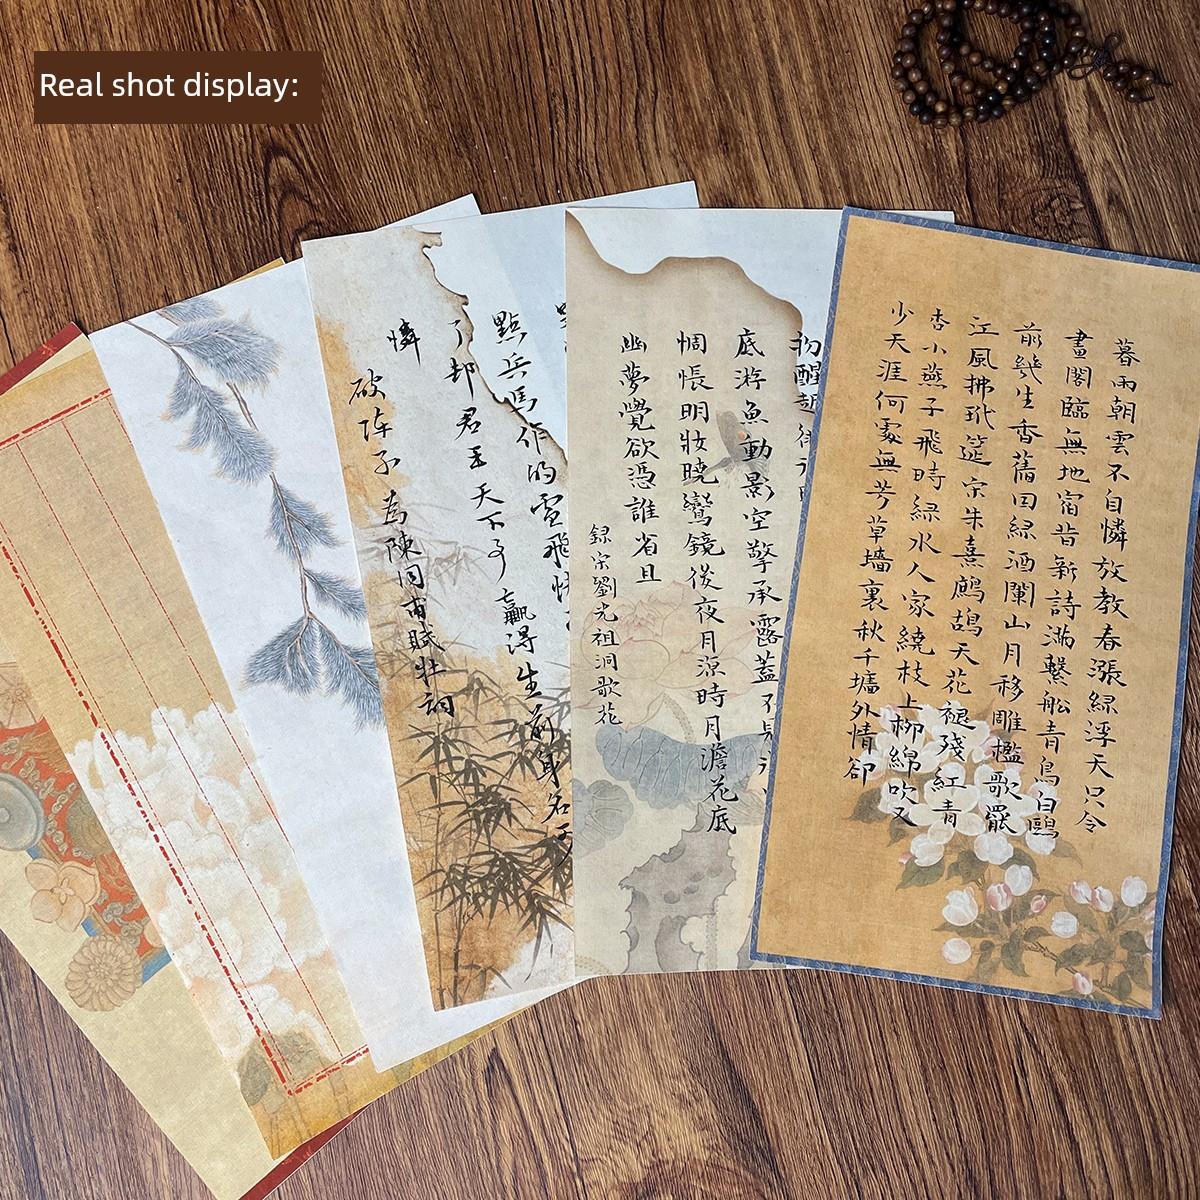 Real shot display:
暮雨朝雲不自憐放教春漲綠浮天只令
畫閣臨無地宿昔新詩滿繫船青鳥白鷗
前幾生香舊因緣酒闌山月移雕檻歌罷
江風拂玳筵宋朱熹鷓鴣天花褪殘紅青
杏小燕子飛時綠水人家繞枝上柳綿吹又
少天涯何處無芳草墻裏秋千墻外情卻
初醒
底游魚動影空擎承露蓋不見
惆悵明妝曉鸞鏡後夜月涼時月澹花底
幽夢覺欲憑誰省且
錄宋劉光祖洞歌花
點兵馬作的盧飛快
了却君王天下事贏得生前身名
憐
破陣子為陳同甫賦壯詞